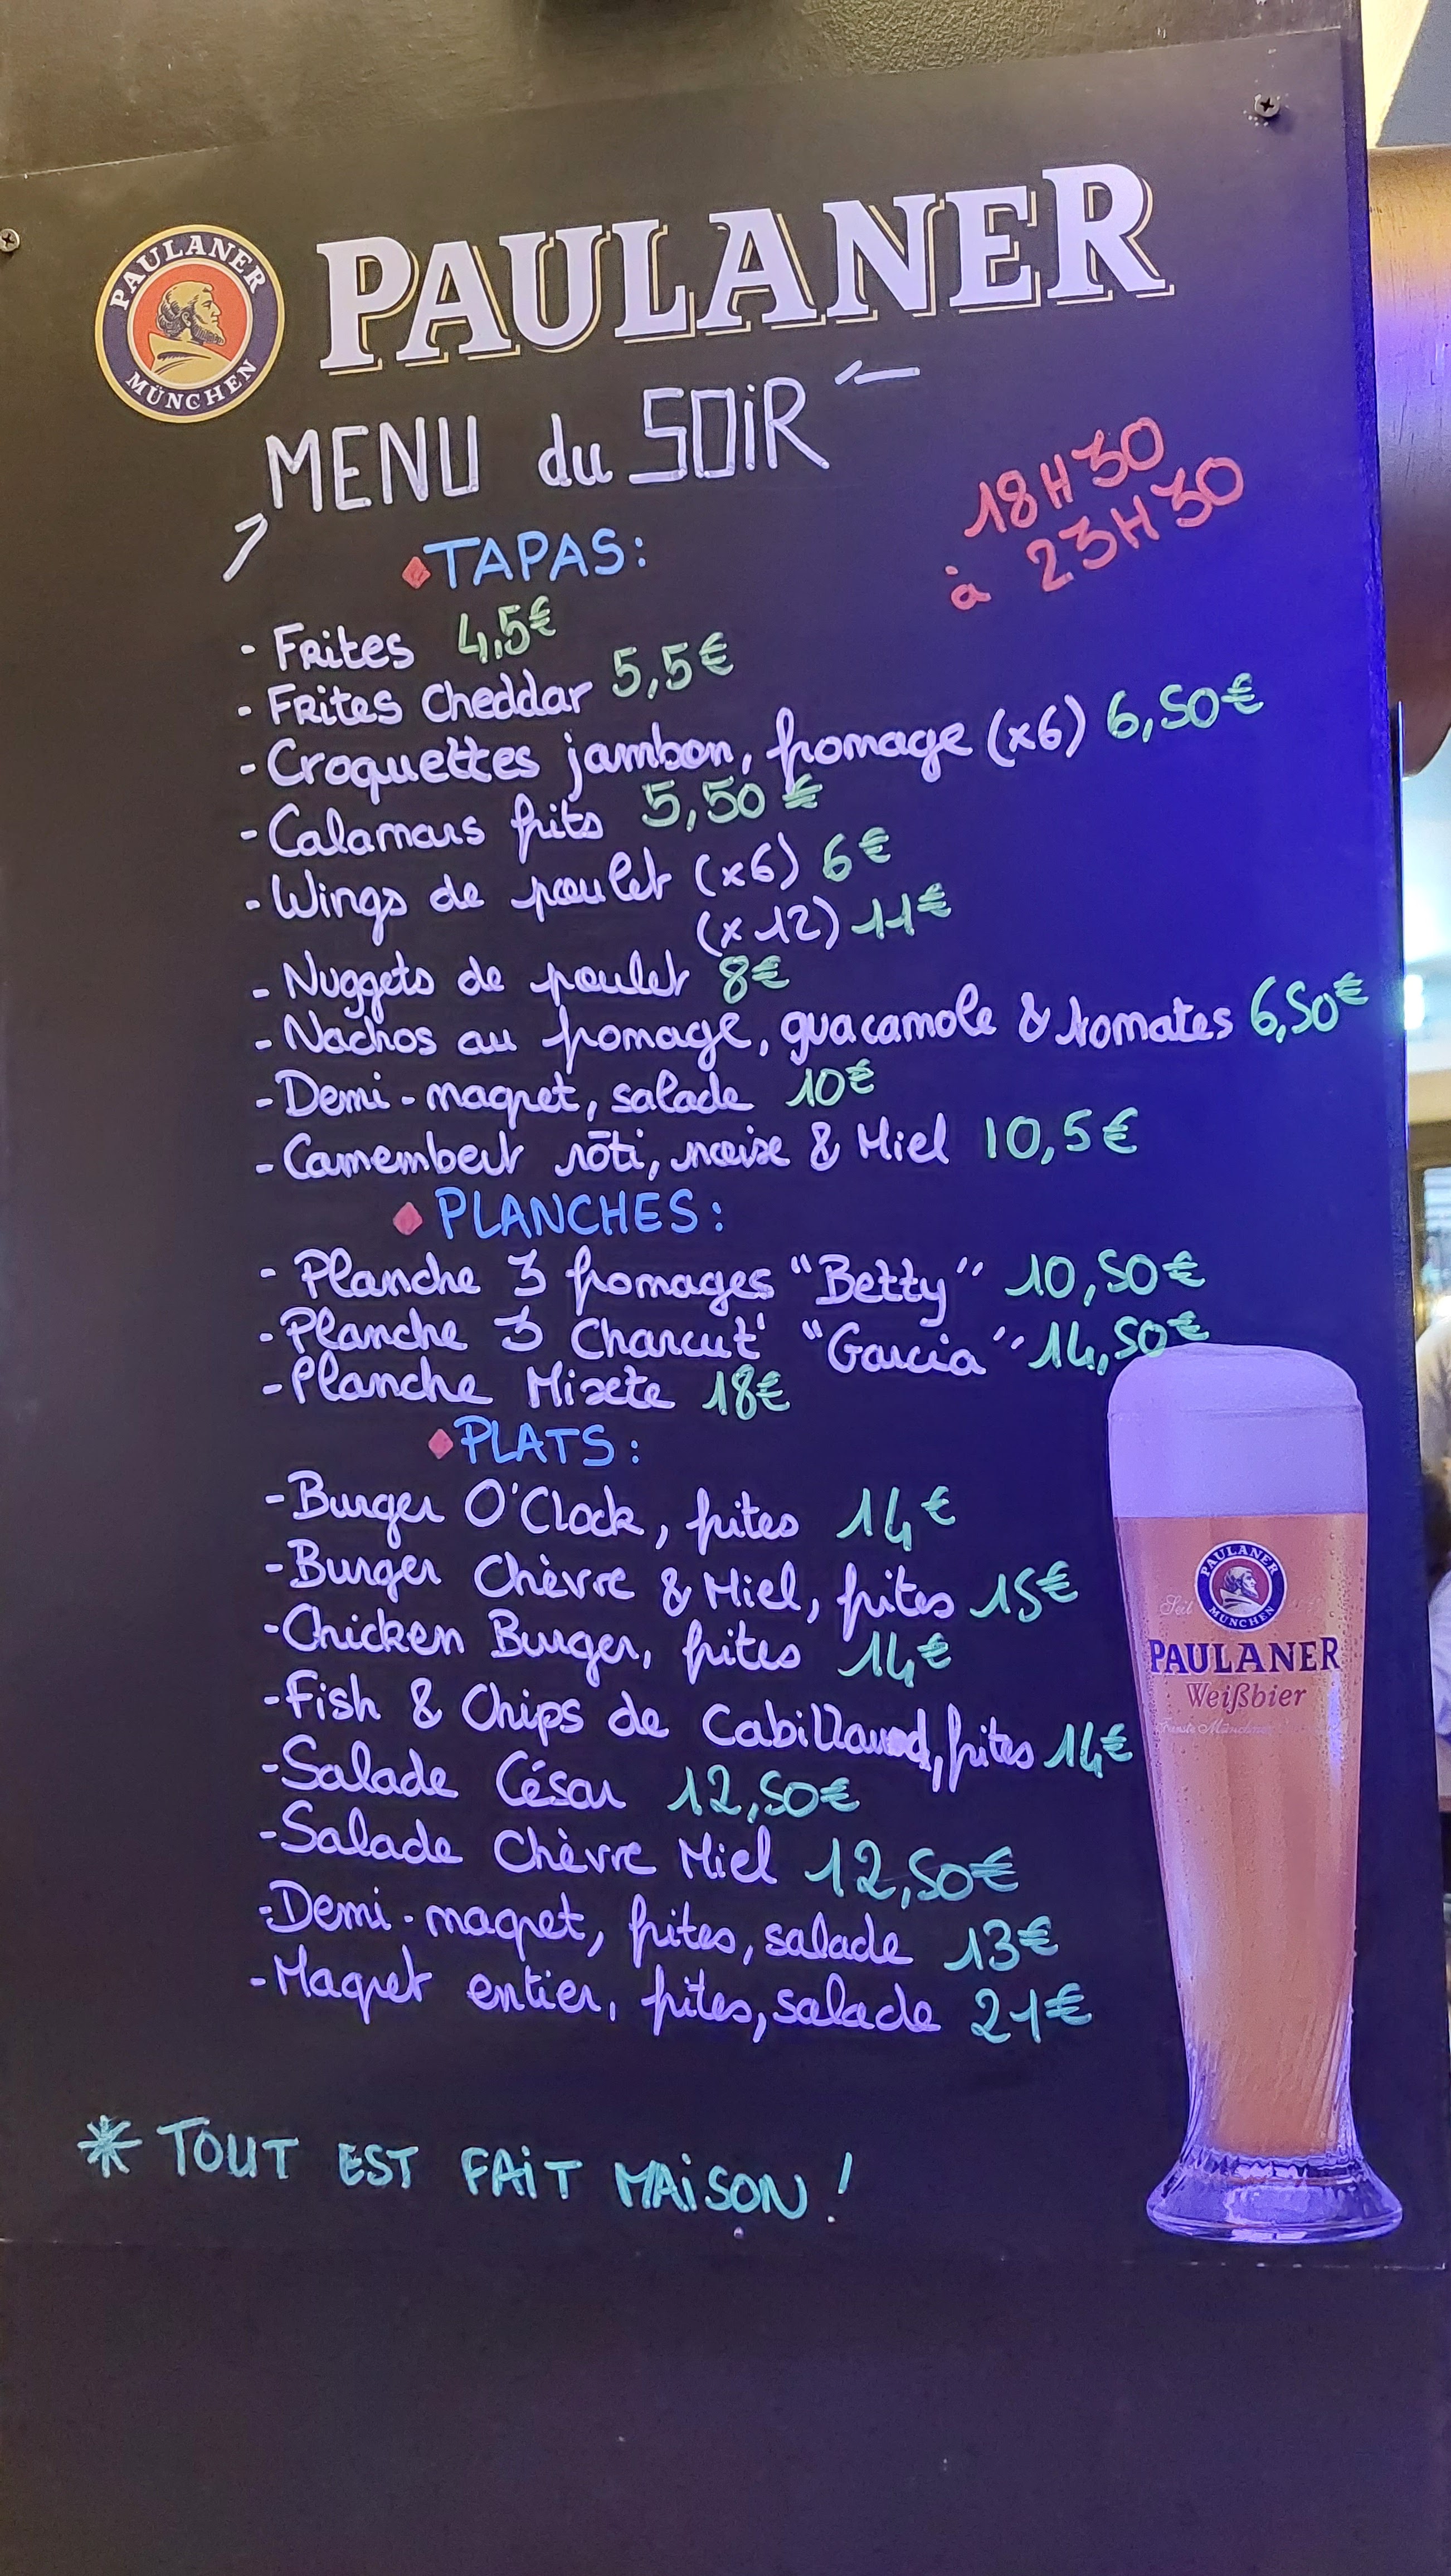 PAULANER
MÜNCHEN
PAULANER
MENU du SOiR
18H30
à 23H30
TAPAS:
- Frites 4,5€
- Frites Cheddar 5,5€
- Croquettes jambon, fromage (x6) 6,50€
- Calamars frits 5,50€
- Wings de poulet (x6) 6€
(x12) 11€
- Nuggets de poulet 8€
- Nachos au fromage, guacamole & tomates 6,50€
- Demi-magret, salade 10€
- Camembert rôti, noix & Miel 10,5€
PLANCHES:
- Planche 3 fromages "Betty" 10,50€
- Planche 3 Charcut' "Garcia" 14,50€
- Planche Mixte 18€
PLATS:
- Burger O'Clock, frites 14€
- Burger Chèvre & Miel, frites 15€
- Chicken Burger, frites 14€
- Fish & Chips de Cabillaud, frites 14€
- Salade César 12,50€
- Salade Chèvre Miel 12,50€
- Demi-magret, frites, salade 13€
- Magret entier, frites, salade 21€
* TOUT EST FAiT MAiSON !
PAULANER
MÜNCHEN
Seit
PAULANER
Weißbier